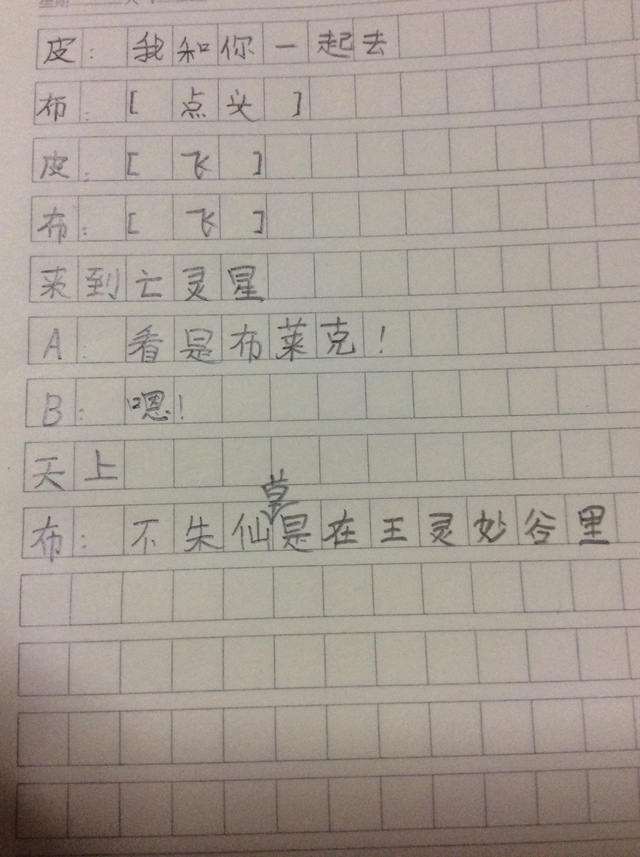 皮：我和你一起去
布：[点头]
皮：[飞]
布：[飞]
来到亡灵星
A：看是布莱克！
B：嗯！
天上
布：不朱仙草是在王灵妙谷里